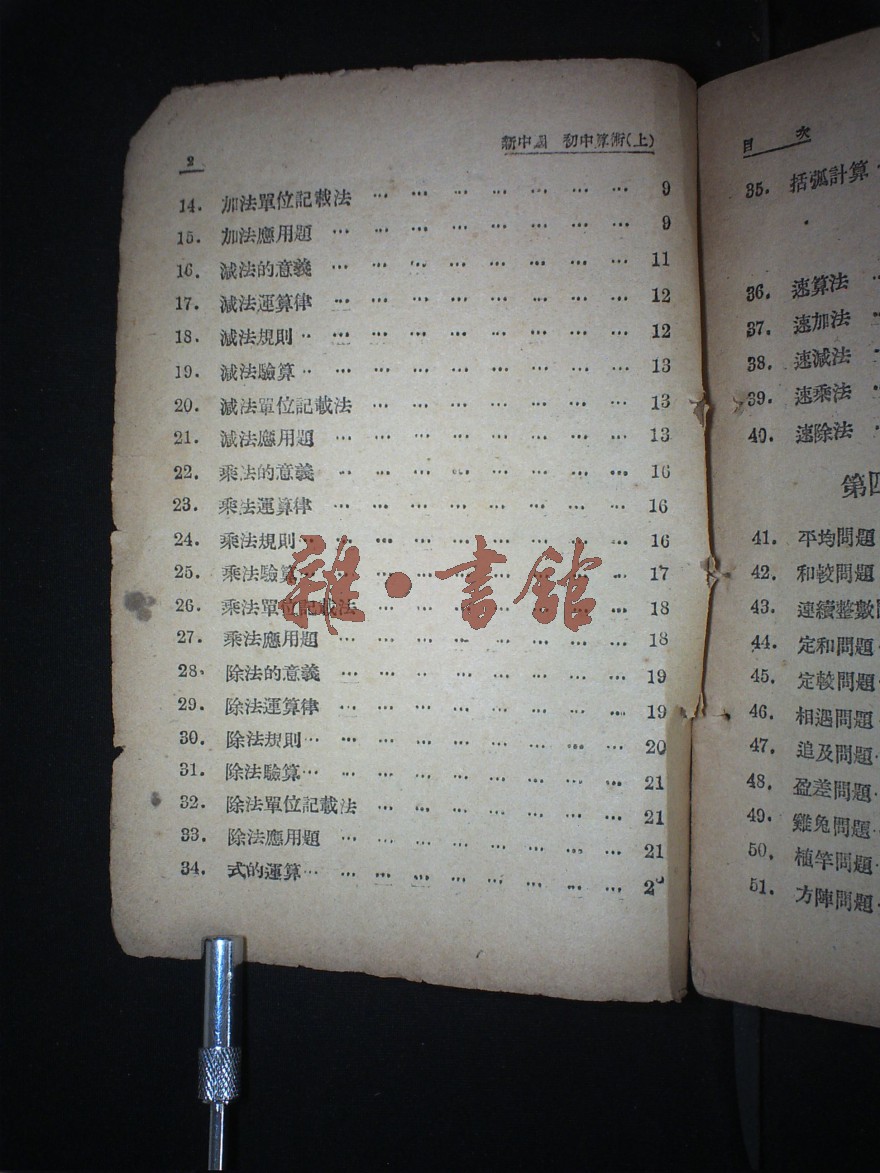 2 新中國 初中算術(上)
14. 加法單位記載法 … … … … … … … 9
15. 加法應用題 … … … … … … … … 9
16. 減法的意義 … … … … … … … … 11
17. 減法運算律 … … … … … … … … 12
18. 減法規則 … … … … … … … … 12
19. 減法驗算 … … … … … … … … 13
20. 減法單位記載法 … … … … … … … 13
21. 減法應用題 … … … … … … … … 13
22. 乘法的意義 … … … … … … … … 16
23. 乘法運算律 … … … … … … … … 16
24. 乘法規則 … … … … … … … … 16
25. 乘法驗算 … … … … … … … … 17
26. 乘法單位記載法 … … … … … … … 18
27. 乘法應用題 … … … … … … … … 18
28. 除法的意義 … … … … … … … … 19
29. 除法運算律 … … … … … … … … 19
30. 除法規則 … … … … … … … … 20
31. 除法驗算 … … … … … … … … 21
32. 除法單位記載法 … … … … … … … 21
33. 除法應用題 … … … … … … … … 21
34. 式的運算 … … … … … … … …
雜·書館
目 次
35. 括弧計算
36. 速算法
37. 速加法
38. 速減法
39. 速乘法
40. 速除法
第四
41. 平均問題
42. 和較問題
43. 連續整數問
44. 定和問題
45. 定較問題
46. 相遇問題
47. 追及問題
48. 盈差問題
49. 雞兔問題
50. 植竿問題
51. 方陣問題